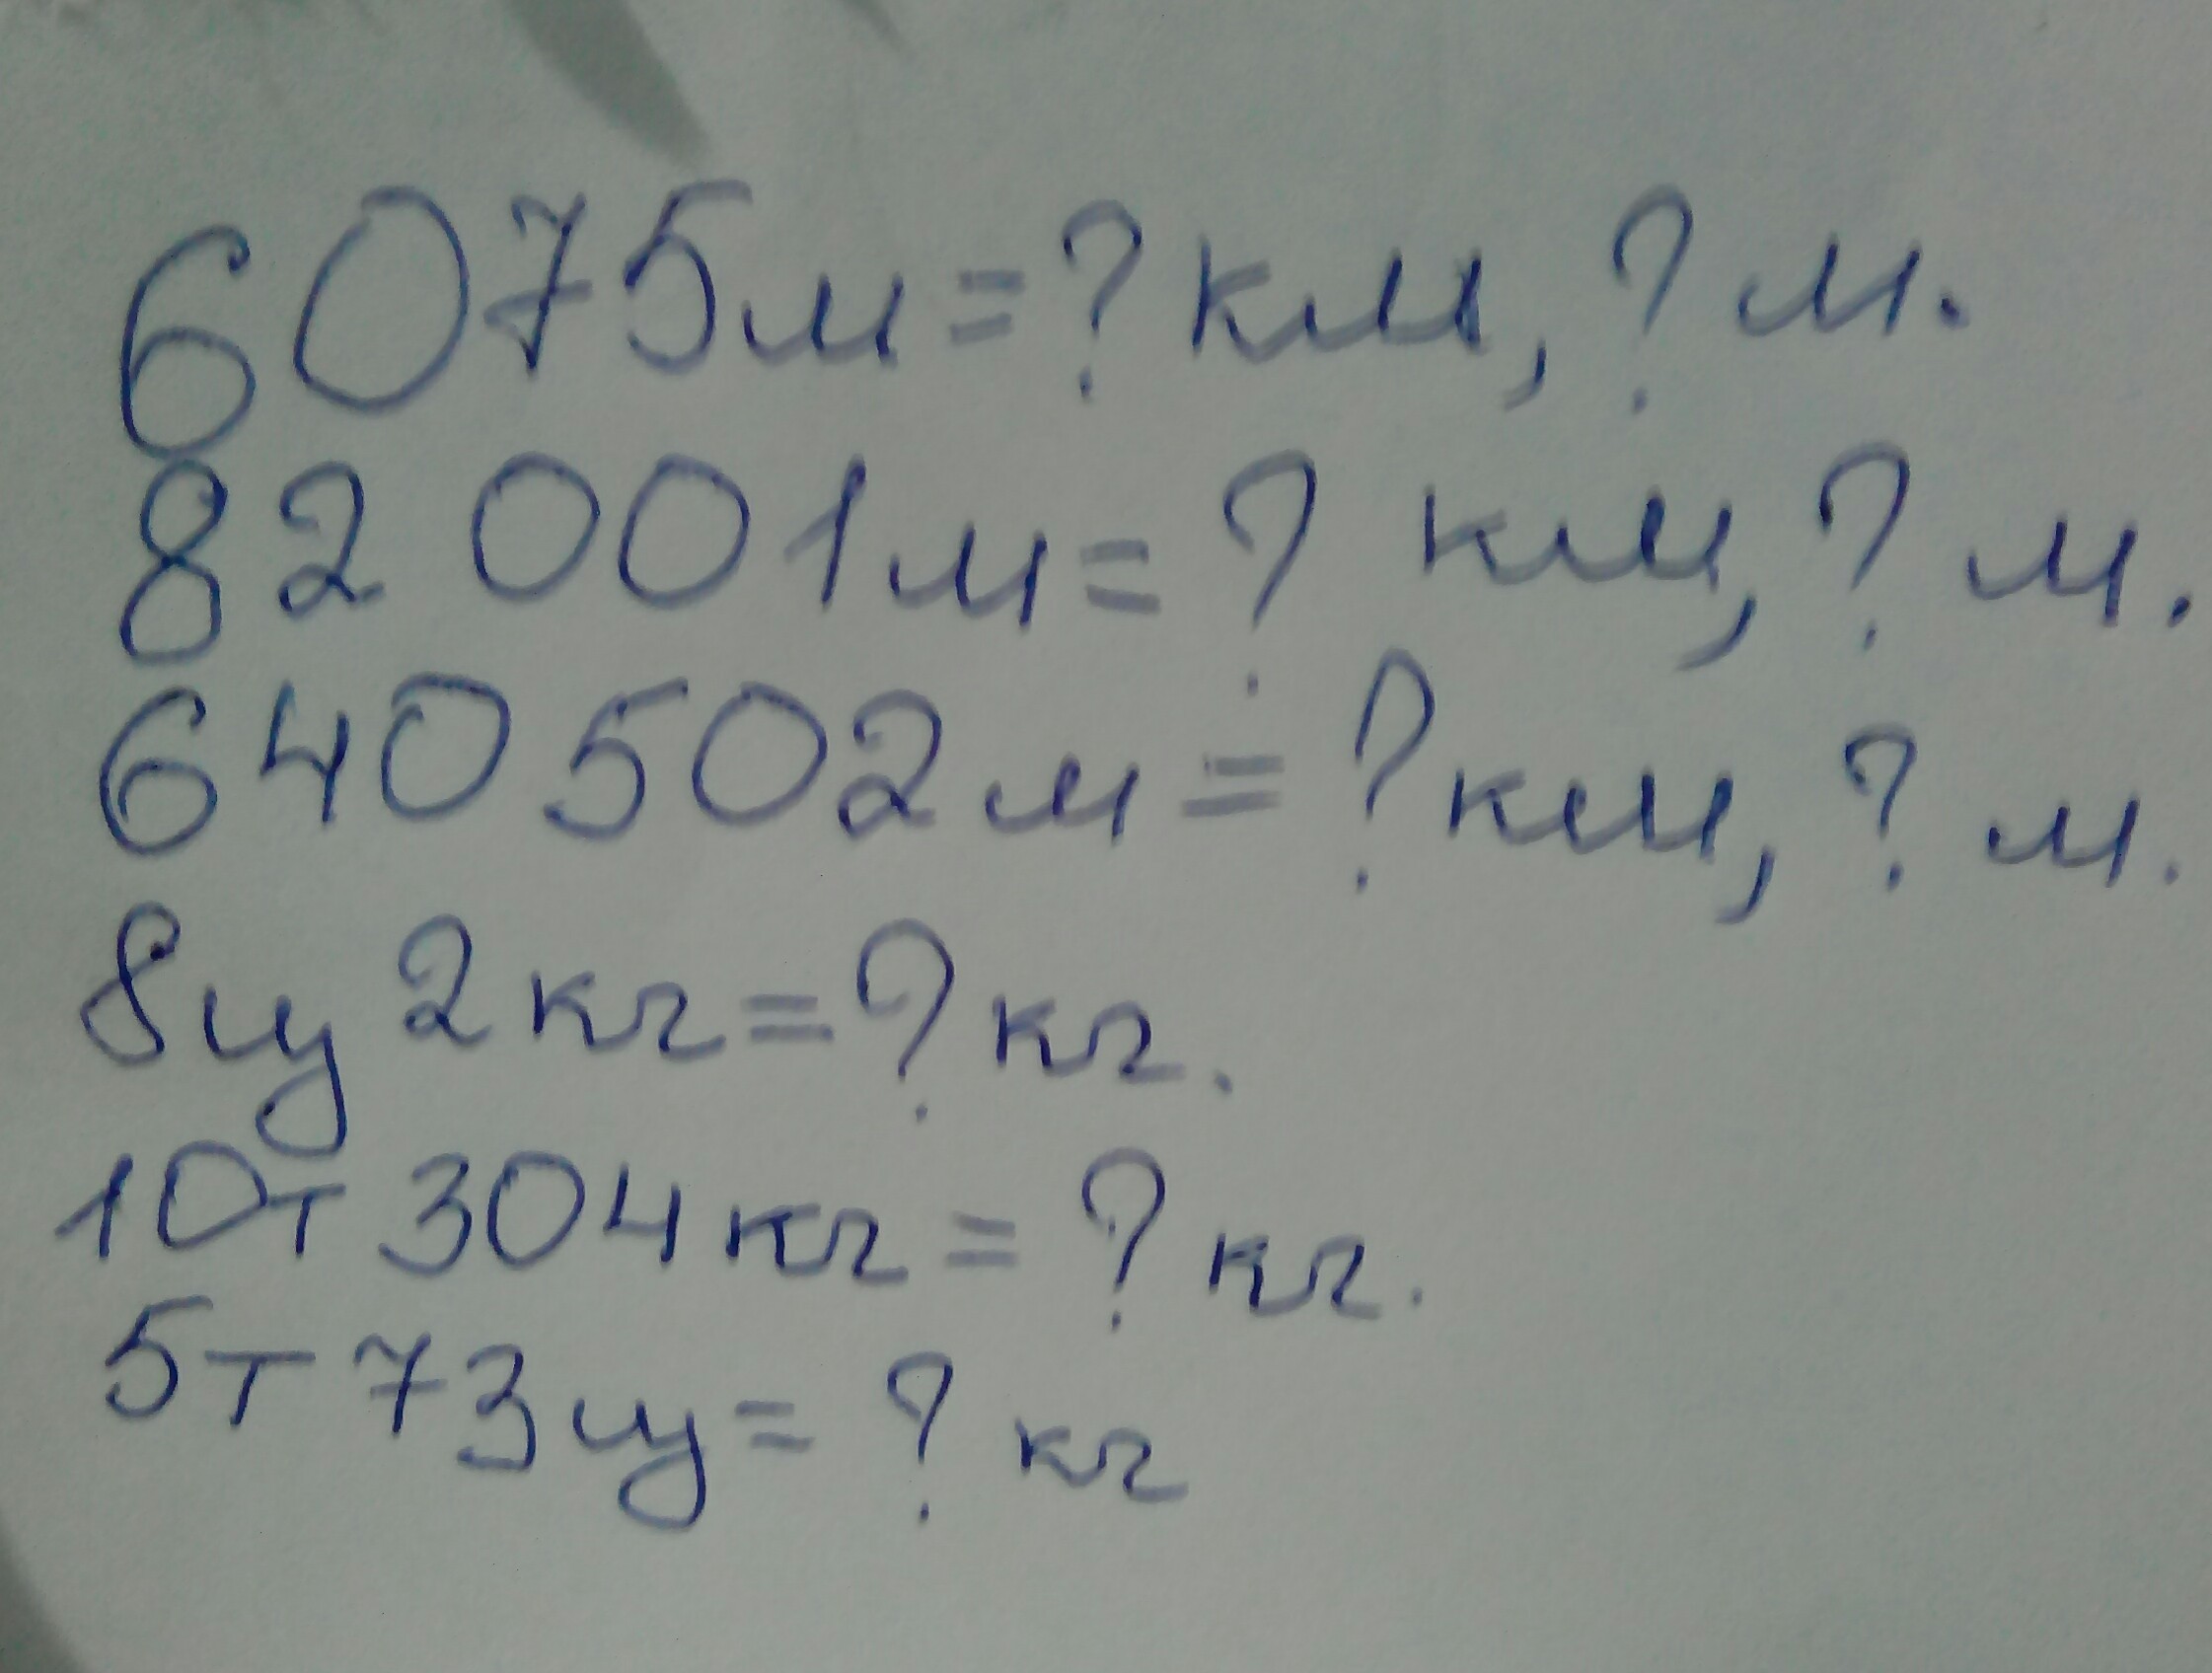 6075м=? км, ? м.
82 001м=? км, ? м.
640 502м=? км, ? м.
8ц 2кг=? кг.
10т 304кг=? кг.
5т 73ц=? кг